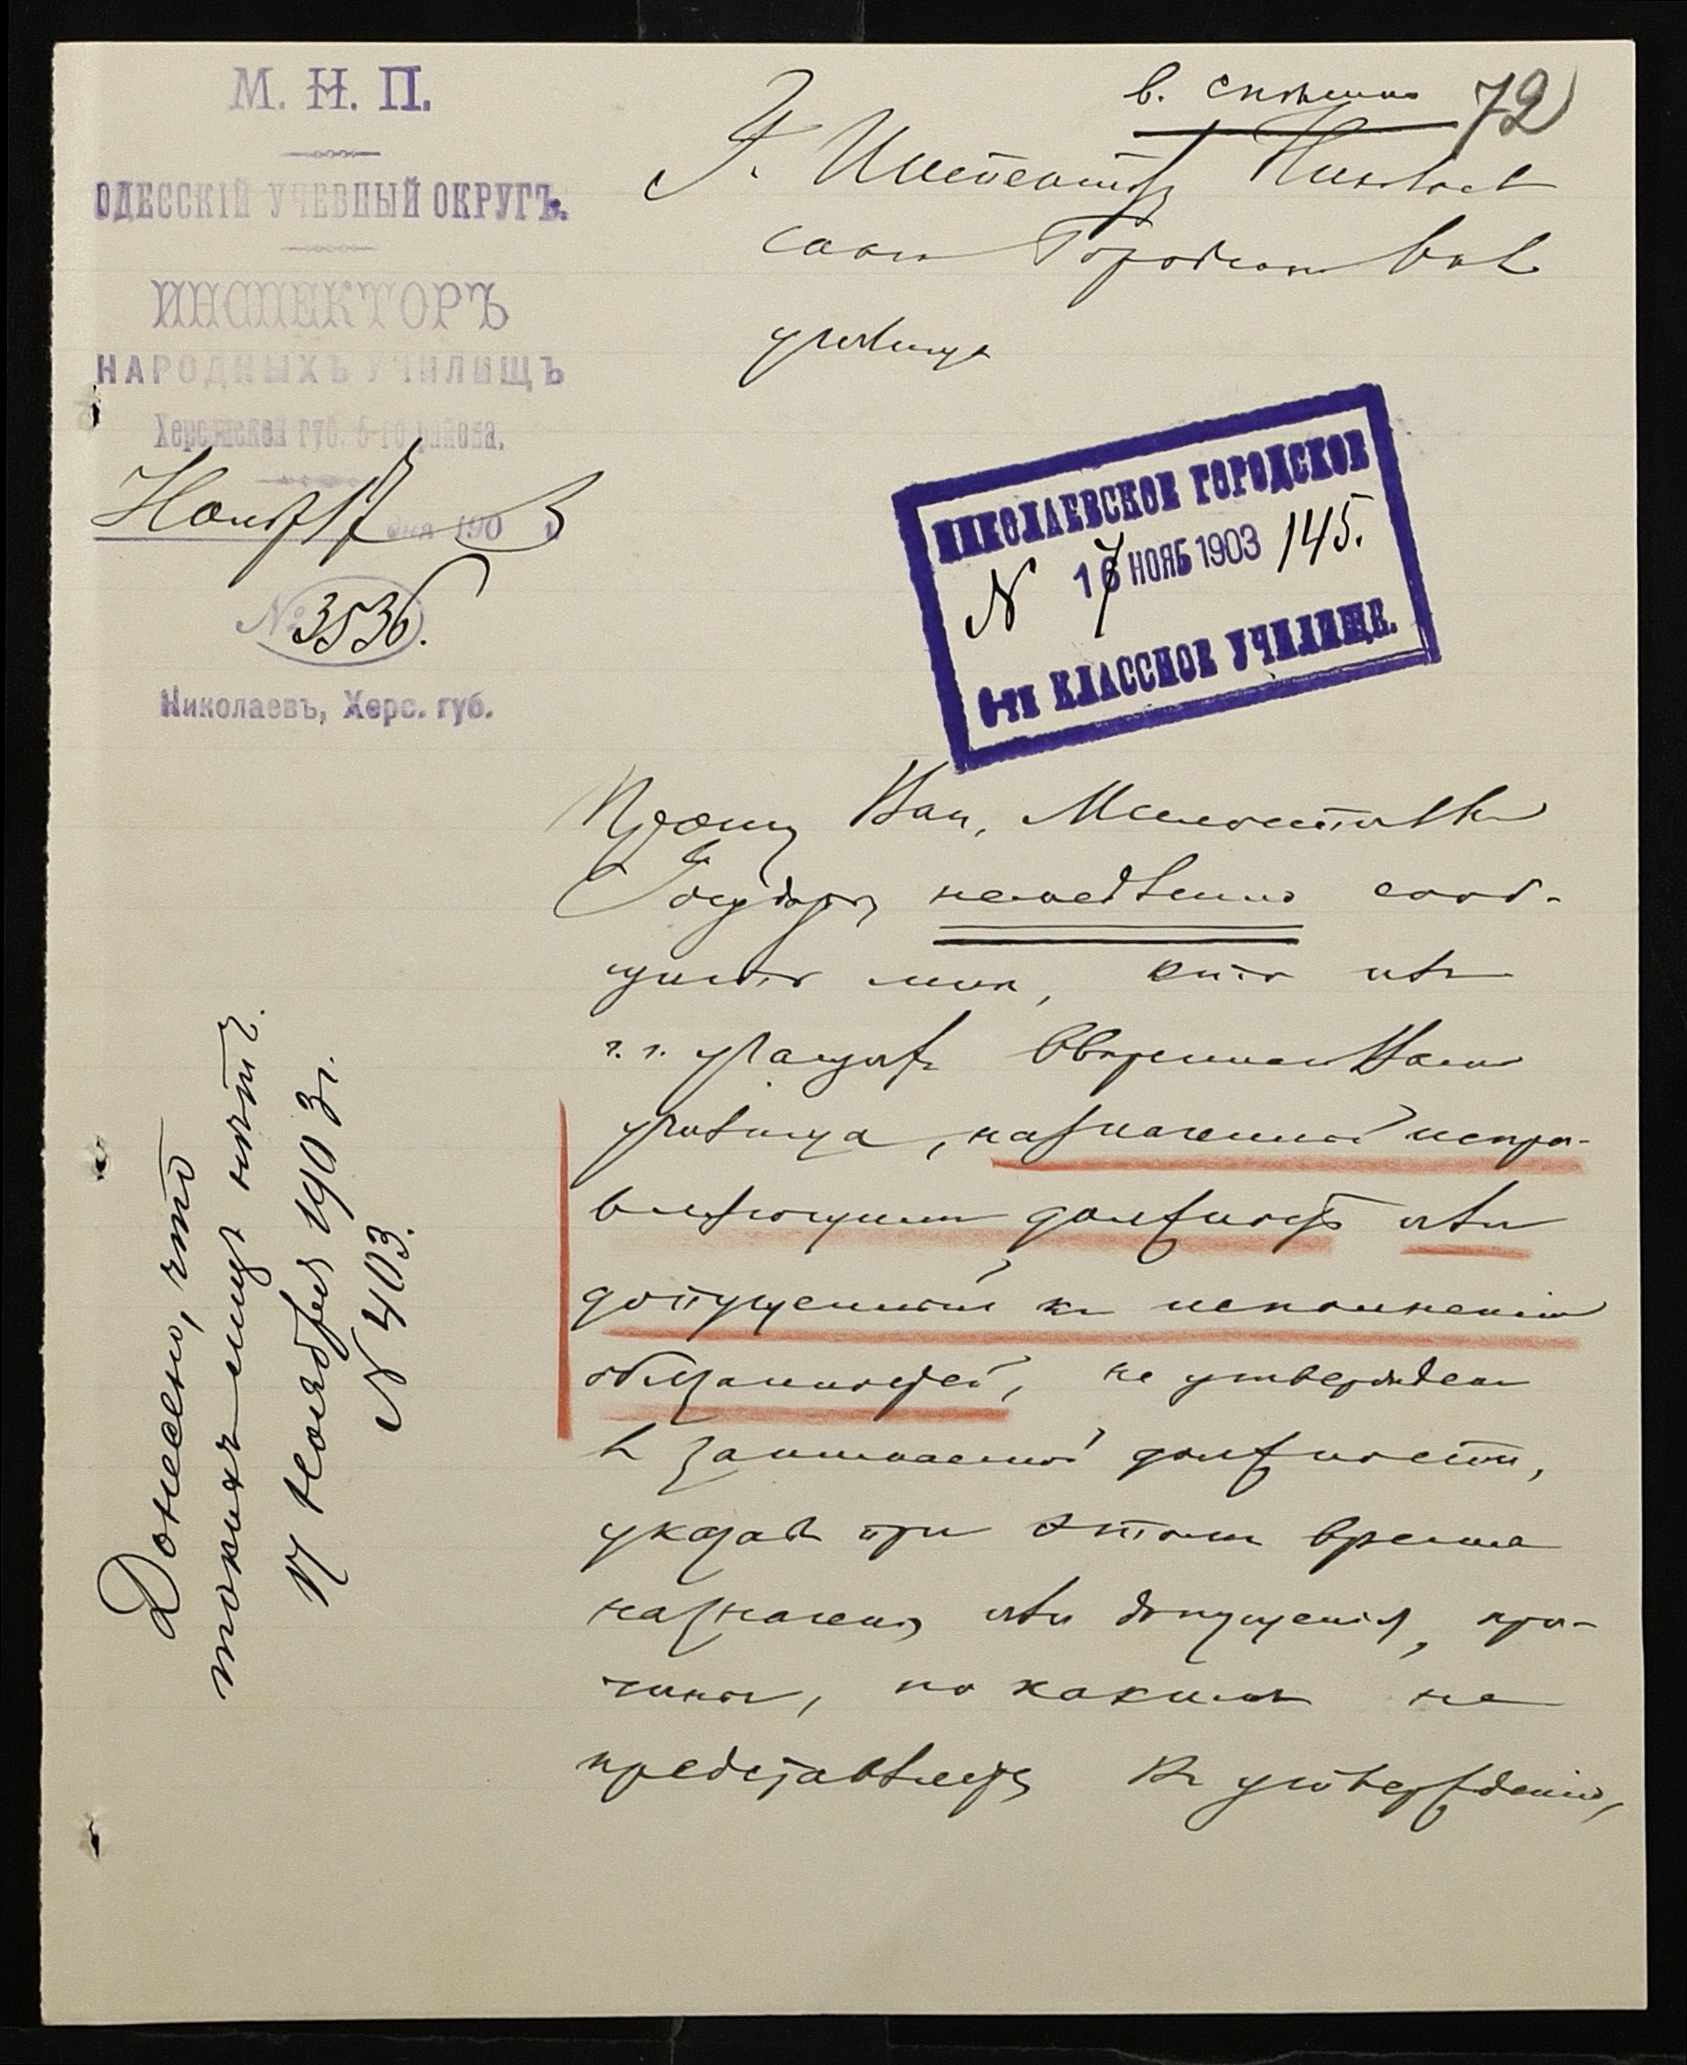 М. Н. П.
ОДЕССКІЙ УЧЕБНЫЙ ОКРУГЪ.
ИНСПЕКТОРЪ
НАРОДНЫХЪ УЧИЛИЩЪ
Херсонской губ. 6-го района.
Нояб 17 дня 1903
№ 3536.
Николаевъ, Херс. губ.
в. спѣшно
72
Г. Инспектору Николаев
скаго Городскаго 6 кл.
училища
НИКОЛАЕВСКОЕ ГОРОДСКОЕ
N 17 НОЯБ 1903 145.
6-ти КЛАССНОЕ УЧИЛИЩЕ.
Прошу Вас, Милостивый
Государь, немедленно сооб-
щить мнѣ, кто изъ
г.г. учащихъ ввѣреннаго Вамъ
училища, назначенный испра-
вляющимъ должность или
допущенный къ исполненію
обязанностей, не утвержденъ
въ занимаемой должности,
указавъ при этомъ время
назначенія или допущенія, при-
чины, по какимъ не
представляется къ утвержденію,
Донесено, что
такихъ лицъ нѣтъ.
17 ноября 1903 г.
N 403.